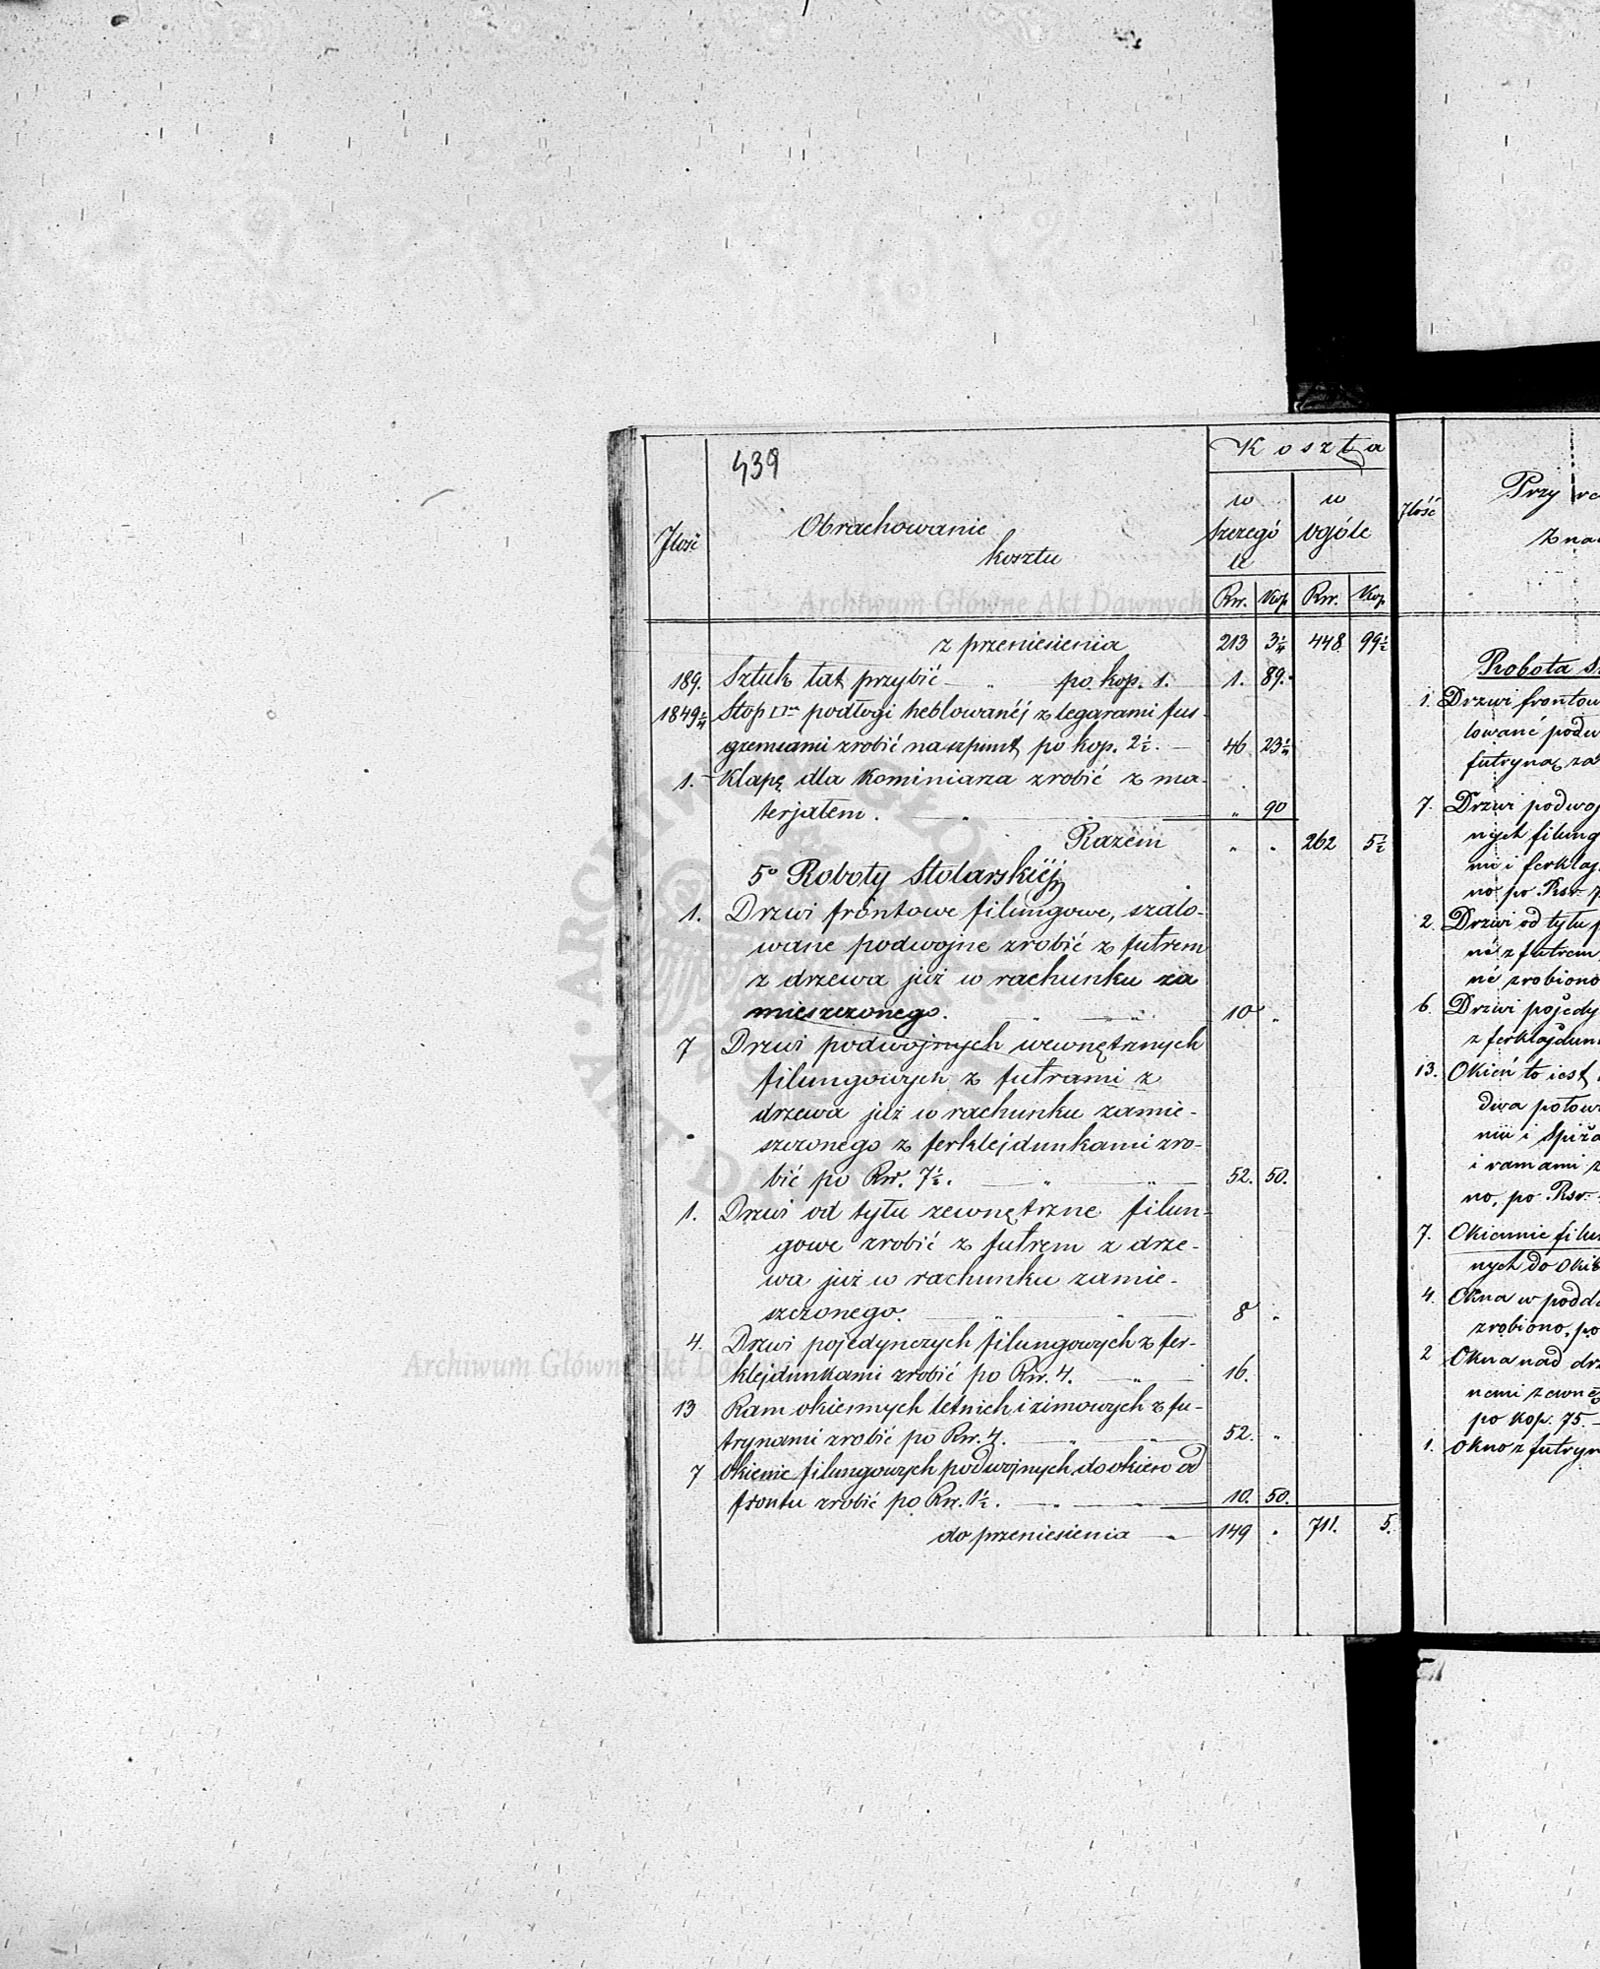 439
Koszta
Ilość
Obrachowanie
kosztu
w
szczegó
le
w
ogóle
Rsr. Kop Rsr. Kop
z przeniesienia 213 3¼ 448. 99½
189. Sztuk łat przybić — " po kop. 1. 1. 89.
1849¼ Stop □ podłogi heblowanéj z legarami fus-
grzemsami zrobić na szpunt po kop. 2½. — 46 23¼
1. Klapę dla Kominiarza zrobić z ma-
terjałem. — " " 90
Razem " " 262 5½
5° Roboty Stolarskiéj
1. Drzwi frontowe filungowe, szalo-
wane podwojne zrobić z futrem
z drzewa już w rachunku za
mieszczonego. " " 10 "
7 Drzwi podwojnych wewnętrznych
filungowych z futrami z
drzewa już w rachunku zamie-
szczonego z ferklejdunkami zro-
bić po Rsr. 7½. — " — " 52. 50.
1. Drzwi od tyłu zewnętrzne filun-
gowe zrobić z futrem z drze-
wa już w rachunku zamie-
szczonego. — " — " 8 "
4. Drzwi pojedynczych filungowych z fer-
klejdunkami zrobić po Rsr. 4. — " — 16.
13 Ram okiennych letnich i zimowych z fu-
trynami zrobić po Rsr. 4. — " — " 52. "
7 Okienic filungowych podwojnych do okien od
frontu zrobić po Rsr. 1½. — " — " 10. 50.
do przeniesienia — " 149 " 711. 5.
Ilość
Przy
Robota
1. Drzwi frontow
lowané podw
futryną za
7. Drzwi podwoj
nych filung
mi i ferklaj
no po Rsr. 7
2. Drzwi od tyłu
né z futrem
né zrobiono
6. Drzwi pojedy
z ferklajdun
13. Okień to iest
dwa połow
nii i Spiża
i ramami z
no, po Rsr.
7. Okiennic filu
nych do okie
4. Okna w podd
zrobiono, po
2 Okna nad drz
nemi zewnę
po kop. 75.
1. Okno z futryn
Archiwum Główne Akt Dawnych
Archiwum Główne Akt Dawnych
ARCHIWUM GŁÓWNE AKT DAWNYCH